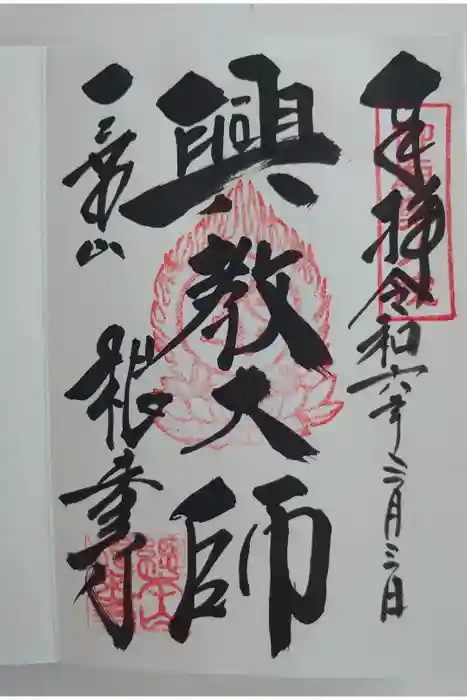 奉拝 令和六年三月三日
興教大師
一乗山 根來寺